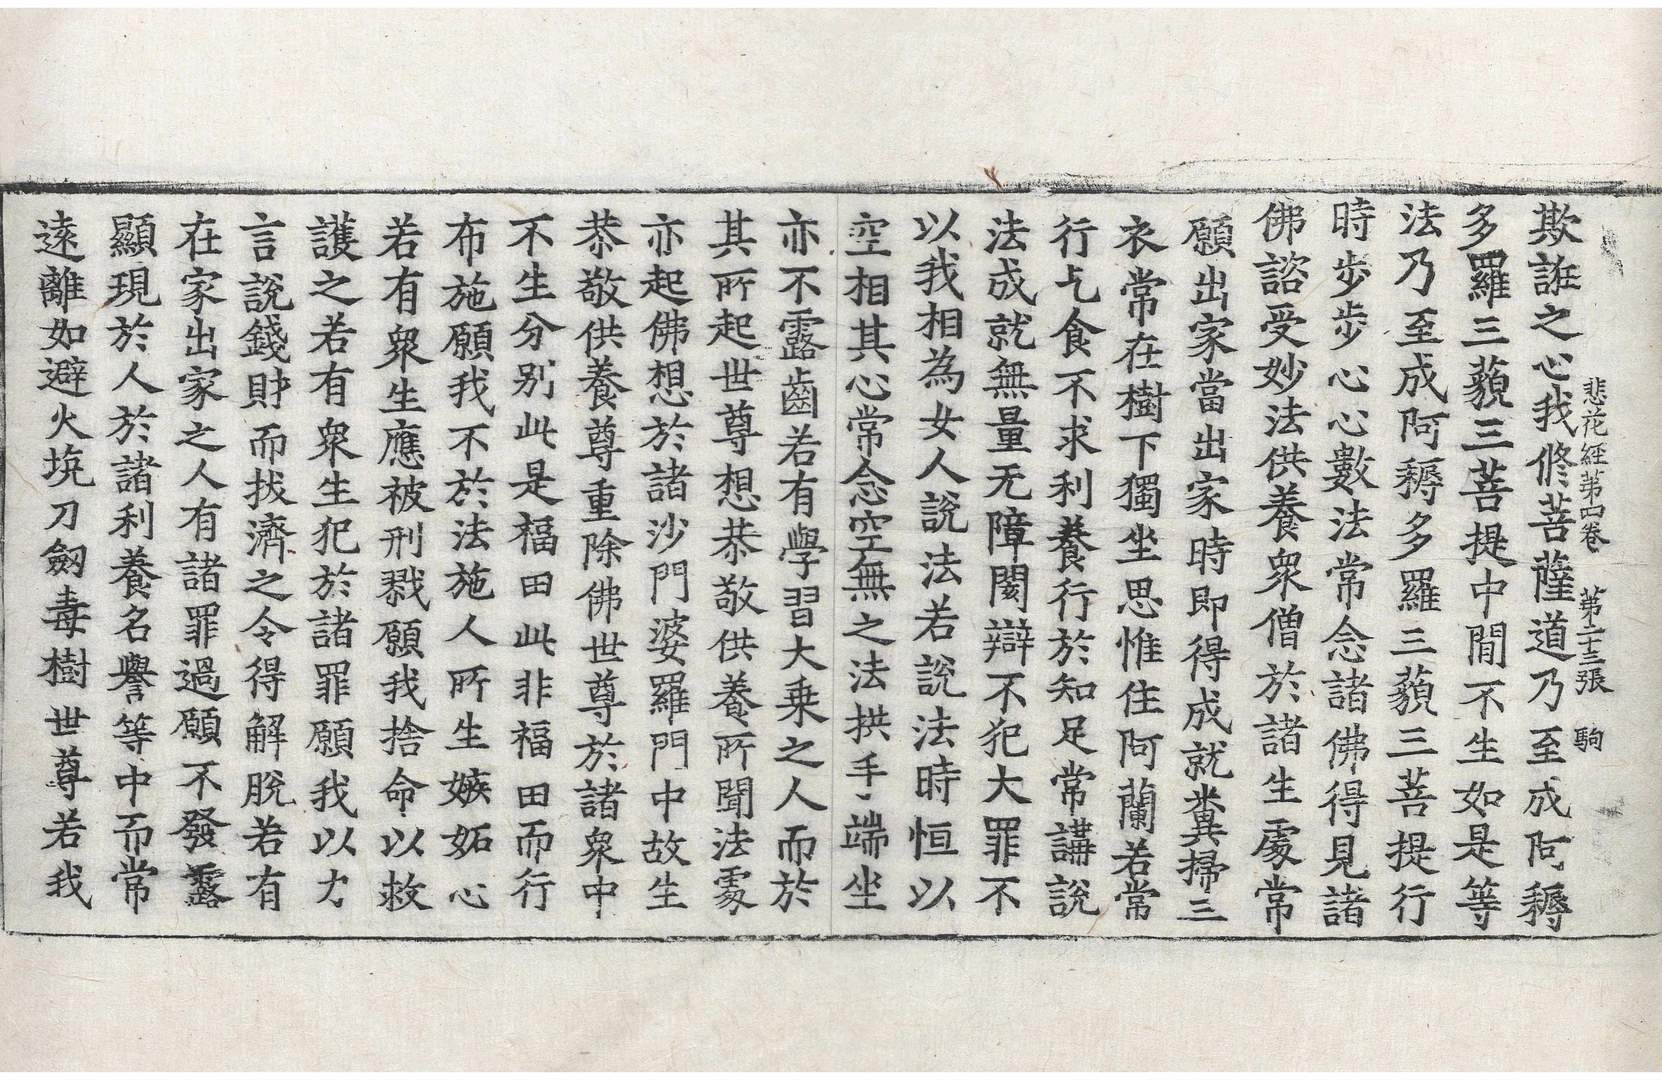 悲花經第四卷 第二十三張 駒
欺誑之心我修菩薩道乃至成阿耨
多羅三藐三菩提中間不生如是等
法乃至成阿耨多羅三藐三菩提行
時步步心心數法常念諸佛得見諸
佛諮受妙法供養衆僧於諸生處常
願出家當出家時即得成就糞掃三
衣常在樹下獨坐思惟住阿蘭若常
行乞食不求利養行於知足常講說
法成就無量无障閡辯不犯大罪不
以我相為女人說法若說法時恒以
空相其心常念空無之法拱手端坐
亦不露齒若有學習大乘之人而於
其所起世尊想恭敬供養所聞法處
亦起佛想於諸沙門婆羅門中故生
恭敬供養尊重除佛世尊於諸衆中
不生分別此是福田此非福田而行
布施願我不於法施人所生嫉妬心
若有衆生應被刑戮願我捨命以救
護之若有衆生犯於諸罪願我以力
言說錢財而拔濟之令得解脫若有
在家出家之人有諸罪過願不發露
顯現於人於諸利養名譽等中而常
遠離如避火坑刀劒毒樹世尊若我